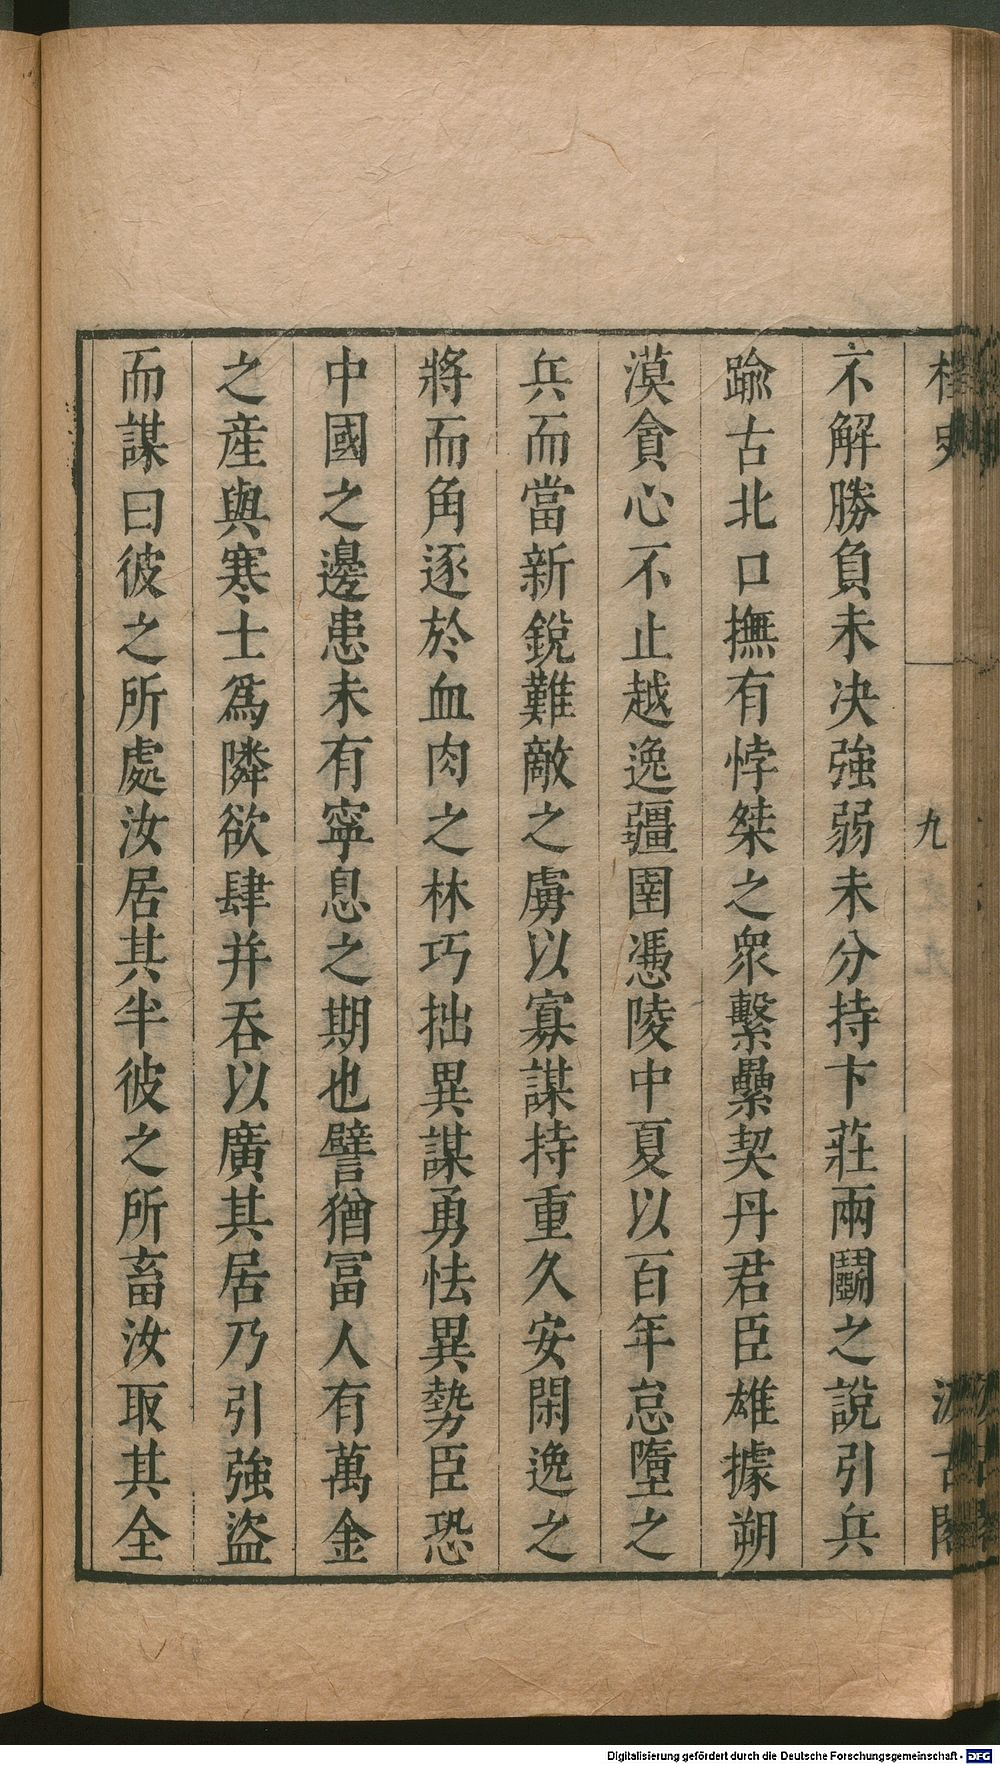 桯史
九
汲古閣
不解勝負未决強弱未分持卞莊兩鬭之說引兵
踰古北口撫有悖桀之衆繫纍契丹君臣雄據朔
漠貪心不止越逸疆圉憑陵中夏以百年怠墮之
兵而當新銳難敵之虜以寡謀持重久安閑逸之
將而角逐於血肉之林巧拙異謀勇怯異勢臣恐
中國之邊患未有寧息之期也譬猶冨人有萬金
之産與寒士爲隣欲肆并吞以廣其居乃引強盜
而謀曰彼之所處汝居其半彼之所畜汝取其全
Digitalisierung gefördert durch die Deutsche Forschungsgemeinschaft - DFG